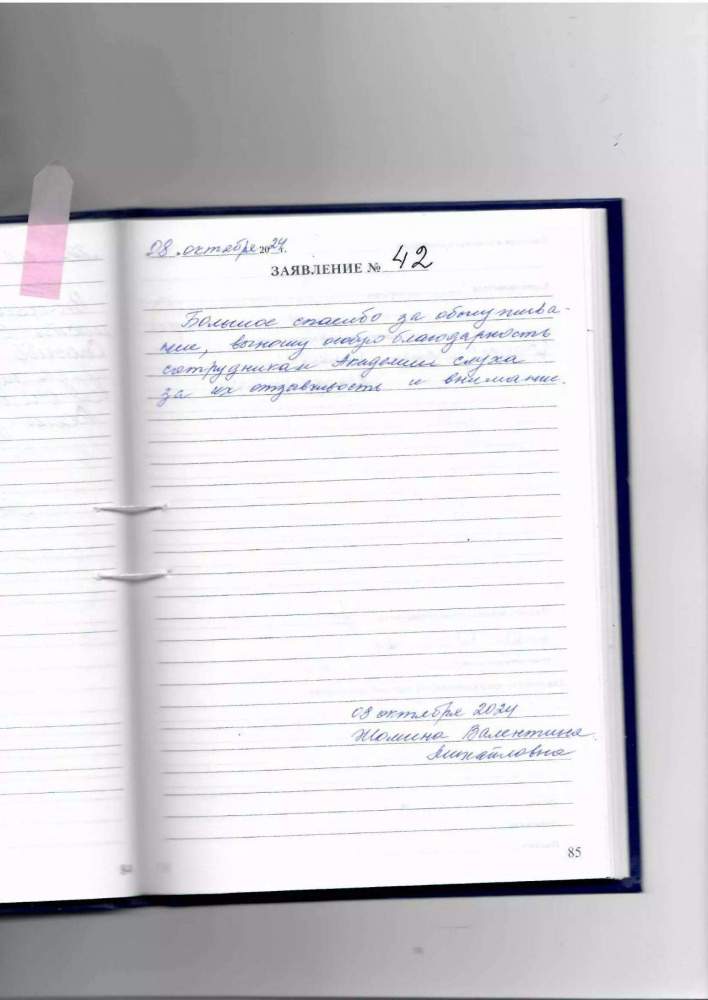 08 октября 2024 г.
ЗАЯВЛЕНИЕ № 42
Большое спасибо за обслужива-
ние, выношу особую благодарность
сотрудникам Академии слуха
за их отзывчивость и внимание.
08 октября 2024
Жомина Валентина
Михайловна
85
84